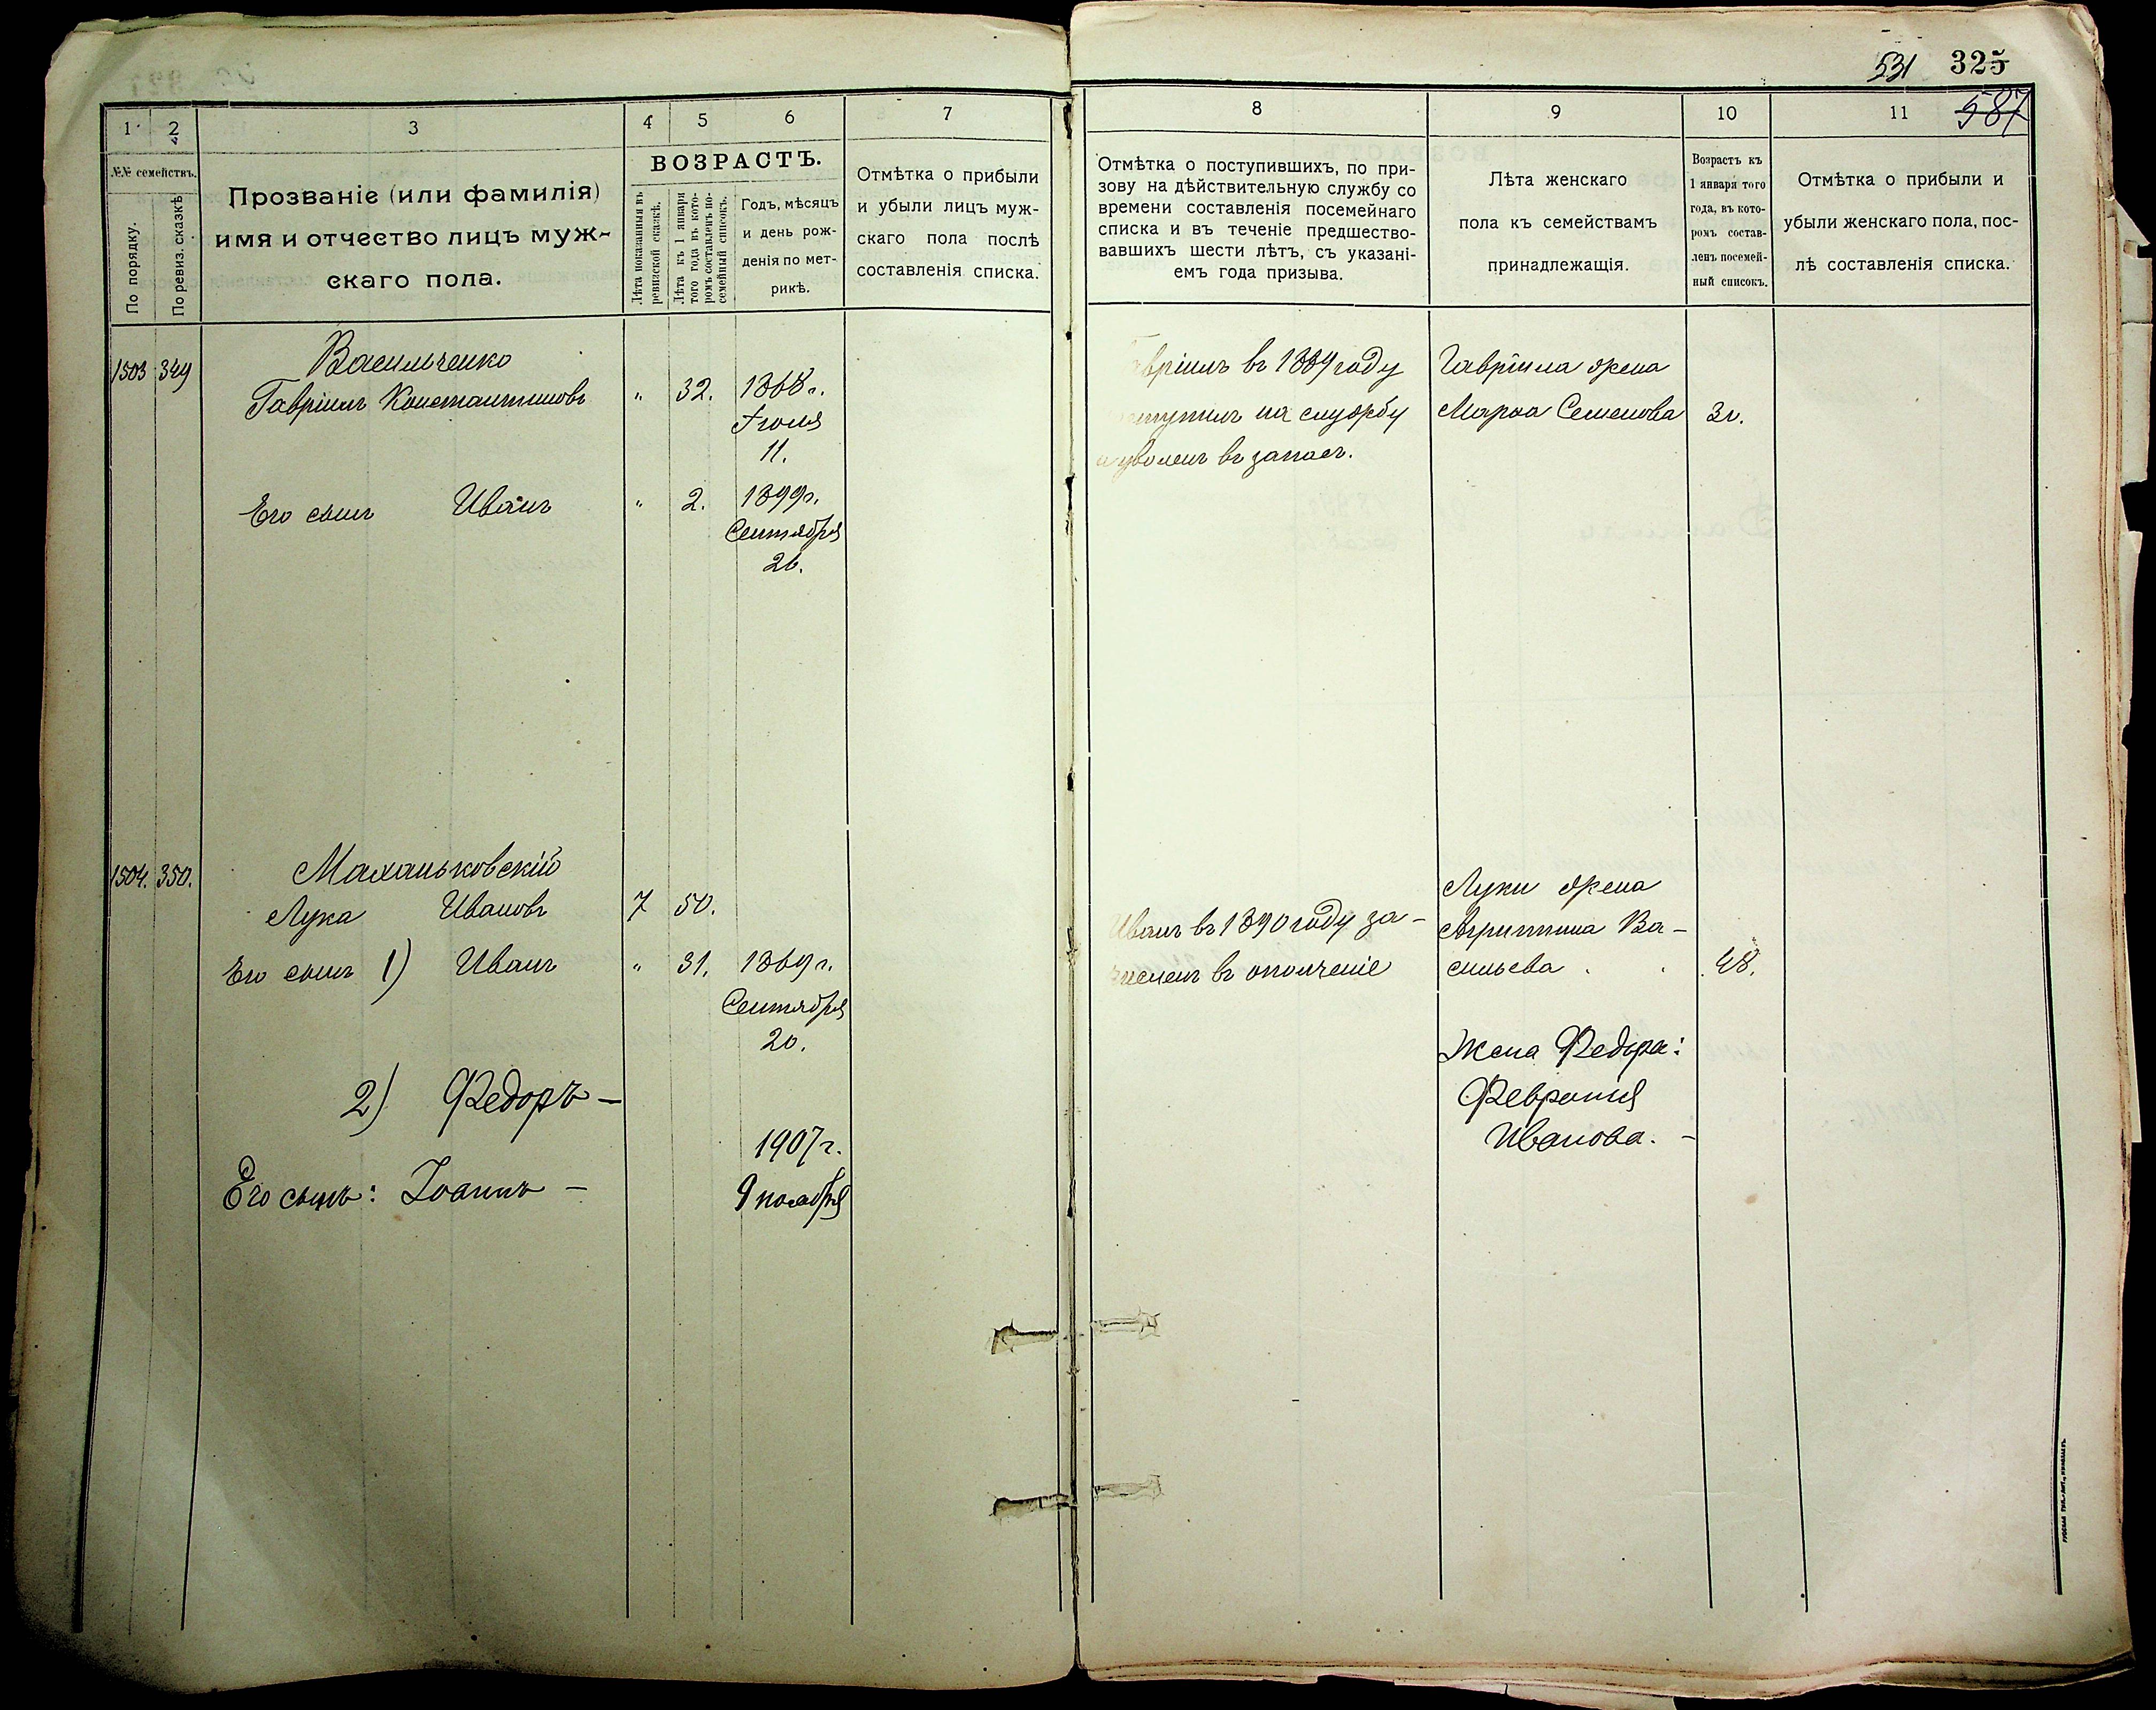 531 325
587
1 2 3 4 5 6 7
№№ семействъ.
По порядку.
По ревиз. сказкѣ
Прозваніе (или фамилія)
имя и отчество лицъ муж-
скаго пола.
ВОЗРАСТЪ.
Лѣта показанныя въ
ревизской сказкѣ.
Лѣта къ 1 января
того года въ кото-
ромъ составленъ по-
семейный списокъ.
Годъ, мѣсяцъ
и день рож-
денія по мет-
рикѣ.
Отмѣтка о прибыли
и убыли лицъ муж-
скаго пола послѣ
составленія списка.
1503 349 Васильченко
Гавріилъ Константиновъ " 32. 1868 г.
Іюля
11.
Его сынъ Иванъ " 2. 1899 г.
Сентября
26.
1504. 350. Маханьковскій
Лука Ивановъ 7 50.
Его сынъ 1) Иванъ " 31. 1869 г.
Сентября
20.
2) Федоръ —
1907 г.
Его сынъ: Іоаннъ — 9 ноября
8 9 10 11
Отмѣтка о поступившихъ, по при-
зову на дѣйствительную службу со
времени составленія посемейнаго
списка и въ теченіе предшество-
вавшихъ шести лѣтъ, съ указані-
емъ года призыва.
Лѣта женскаго
пола къ семействамъ
принадлежащія.
Возрастъ къ
1 января того
года, въ кото-
ромъ состав-
ленъ посемей-
ный списокъ.
Отмѣтка о прибыли и
убыли женскаго пола, пос-
лѣ составленія списка.
Гавріилъ въ 1889 году
поступилъ на службу
и уволенъ въ запасъ.
Гавріила жена
Марѳа Семенова 30.
Иванъ въ 1890 году за-
численъ въ ополченіе
Луки жена
Агрипина Ва-
сильева . . 48.
Жена Федора:
Февронія
Иванова. —